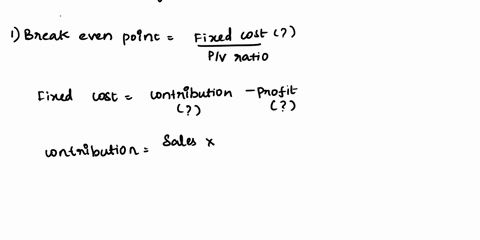 1) Break even point = Fixed cost (?)
P/V ratio
Fixed cost = contribution - Profit
(?) (?)
contribution = Sales ×